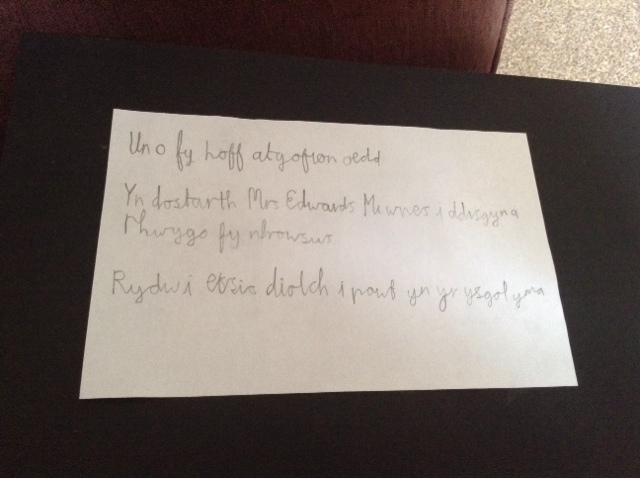 Un o fy hoff atgofion oedd
Yn dostarth Mrs Edwards Mi wnes i ddisgyn a
rhwygo fy nhrowsus
Rydw i etsio diolch i pawb yn yr ysgol yma